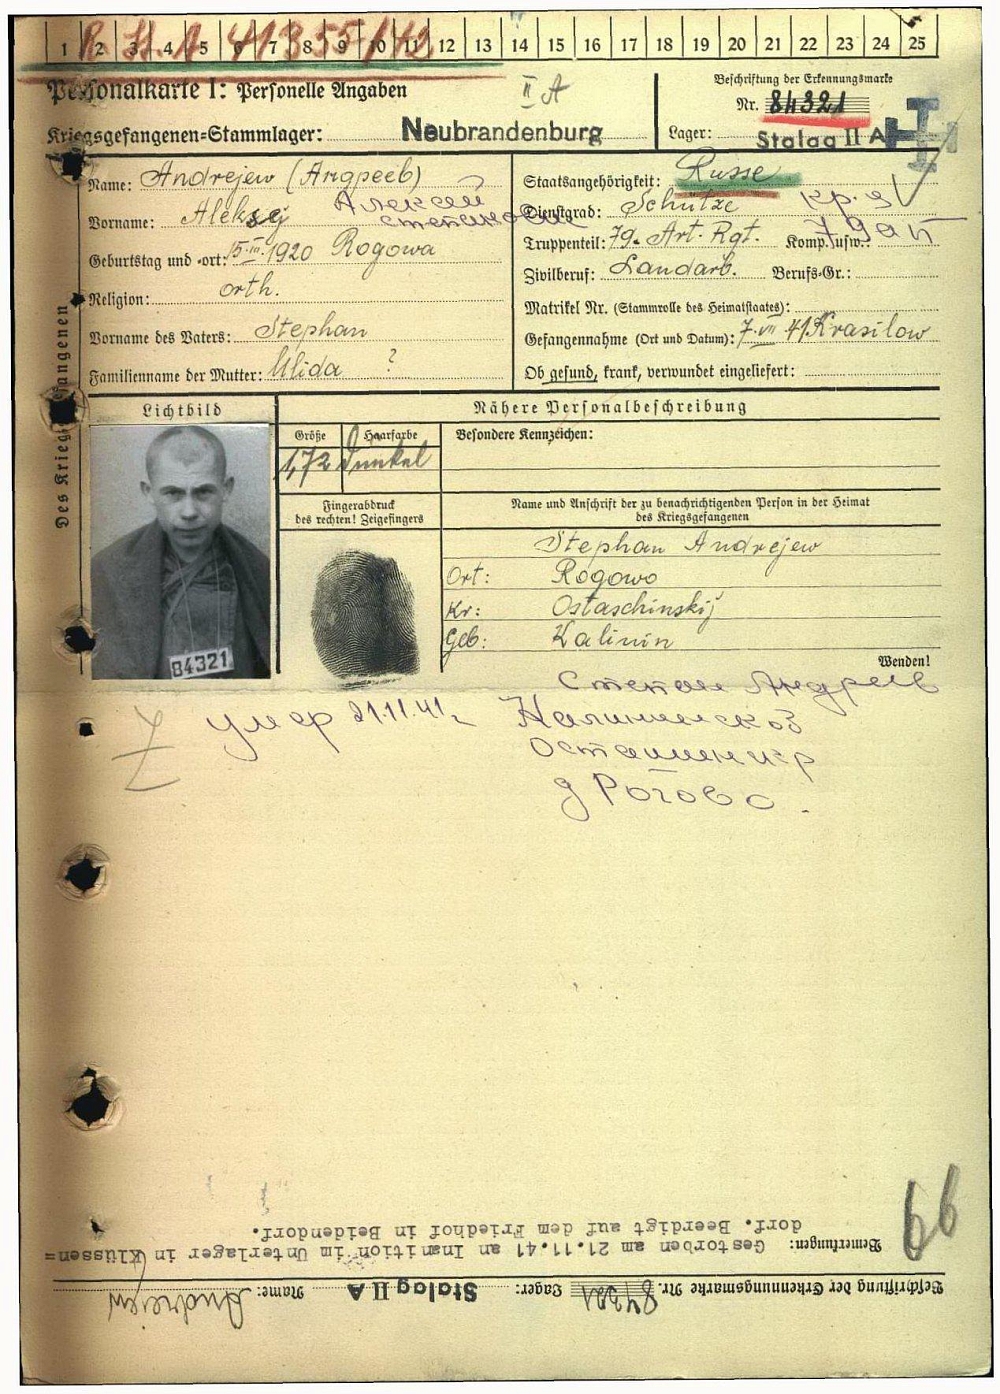 1 2 3 4 5 6 7 8 9 10 11 12 13 14 15 16 17 18 19 20 21 22 23 24 25
Personalkarte I: Personelle Angaben
II A
Beschriftung der Erkennungsmarke
Nr. 84321
Kriegsgefangenen=Stammlager: Neubrandenburg
Lager: Stalag II A
Des Kriegsgefangenen
Name: Andrejew (Андреев)
Staatsangehörigkeit: Russe
Vorname: Aleksej Алексей
Степанович
Dienstgrad: Schütze кр-ц
Geburtstag und =ort: 15.III.1920 Rogowa
Truppenteil: 79. Art. Rgt. Komp. usw.: 79 ап
Religion: orth.
Zivilberuf: Landarb. Berufs=Gr.:
Matrikel Nr. (Stammrolle des Heimatstaates):
Vorname des Vaters: Stephan
Gefangennahme (Ort und Datum): 7.VII 41 Krasilow
Familienname der Mutter: Ulida ?
Ob gesund, krank, verwundet eingeliefert:
Lichtbild
Nähere Personalbeschreibung
Größe Haarfarbe Besondere Kennzeichen:
1,72 dunkel
Fingerabdruck
des rechten! Zeigefingers
Name und Anschrift der zu benachrichtigenden Person in der Heimat
des Kriegsgefangenen
Stephan Andrejew
Ort: Rogowo
Kr: Ostaschinskij
Geb: Kalinin
84321
Wenden!
Степан Андреев
умер 21.11.41г
Калининской
Осташин кр
д Рогово.
66
Beschriftung der Erkennungsmarke Nr. 84321 Lager: Stalag II A Name: Andrejew
Bemerkungen: Gestorben am 21.11.41 an Inanition im Unterlager in Klüssen=
dorf. Beerdigt auf dem Friedhof in Beidendorf.